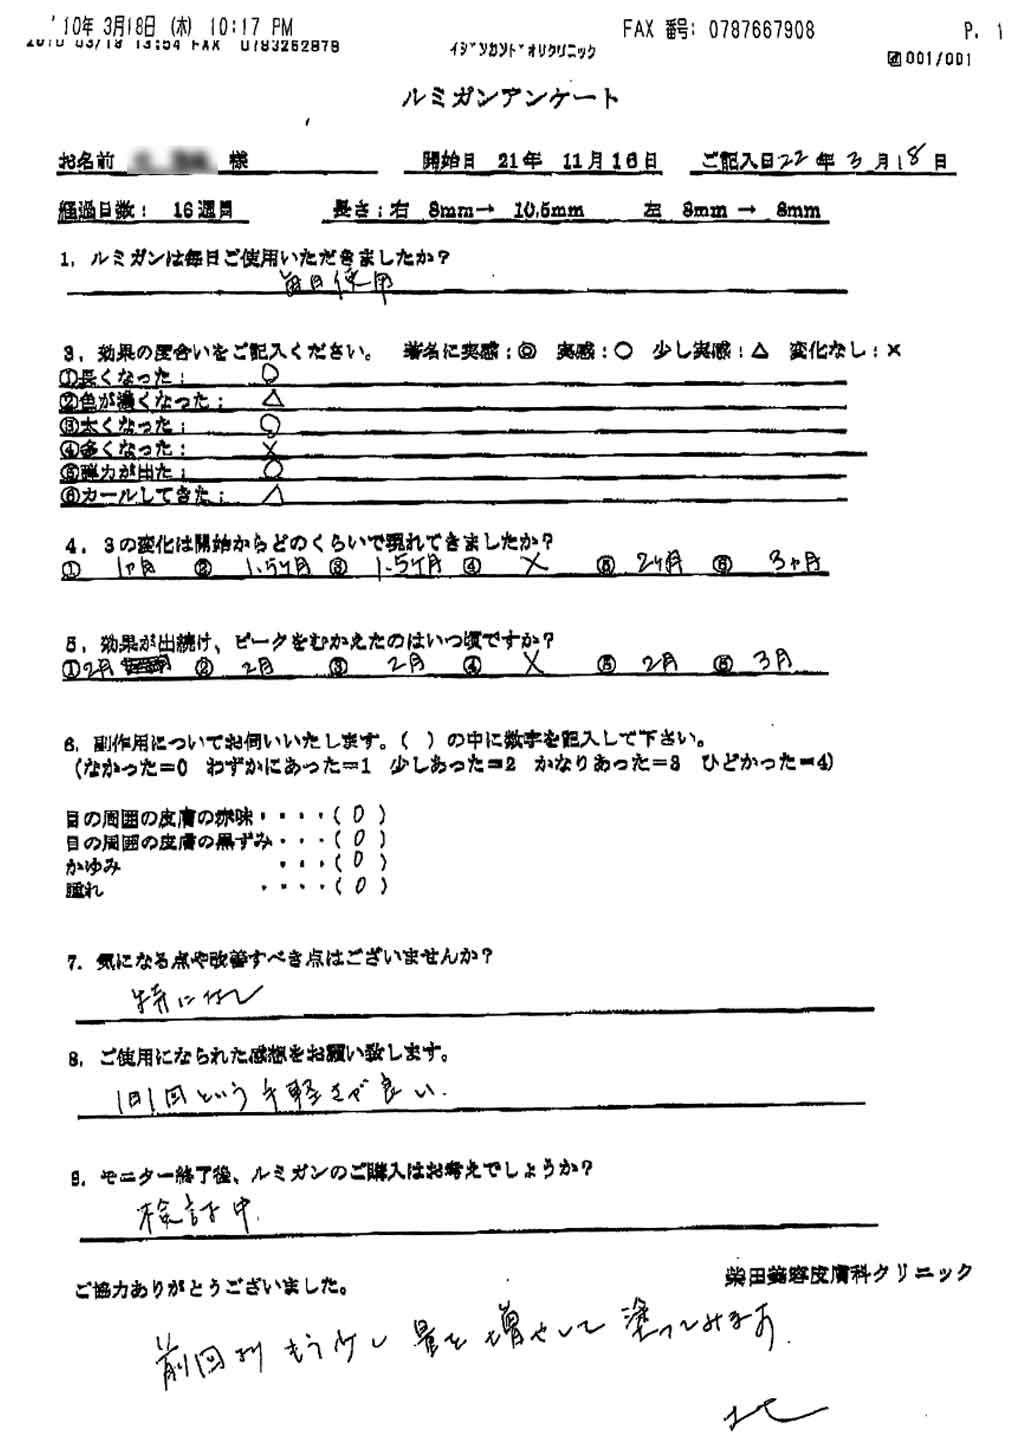 '10年 3月18日 (木) 10:17 PM FAX 番号: 0787667908 P. 1
2010 03/18 13:54 FAX 0783262879 ｲｼﾞﾝｶﾝﾄﾞｵﾘｸﾘﾆｯｸ 001/001
ルミガンアンケート
お名前 様 開始日 21年 11月16日 ご記入日22年3月18日
経過日数: 16週目 長さ:右 8mm→ 10.5mm 左 8mm → 8mm
1. ルミガンは毎日ご使用いただきましたか?
毎日使用
3. 効果の度合いをご記入ください。 著名に実感:◎ 実感:○ 少し実感:△ 変化なし:×
①長くなった: ○
②色が濃くなった: △
③太くなった: ○
④多くなった: ×
⑤弾力が出た: ○
⑥カールしてきた: △
4. 3の変化は開始からどのくらいで現れてきましたか?
① 1ヶ月 ② 1.5ヶ月 ③ 1.5ヶ月 ④ × ⑤ 2ヶ月 ⑥ 3ヶ月
5. 効果が出続け、ピークをむかえたのはいつ頃ですか?
①2月 ② 2月 ③ 2月 ④ × ⑤ 2月 ⑥ 3月
6. 副作用についてお伺いいたします。( )の中に数字を記入して下さい。
(なかった=0 わずかにあった=1 少しあった=2 かなりあった=3 ひどかった=4)
目の周囲の皮膚の赤味・・・・( 0 )
目の周囲の皮膚の黒ずみ・・・( 0 )
かゆみ ・・・( 0 )
腫れ ・・・・( 0 )
7. 気になる点や改善すべき点はございませんか?
特になし
8. ご使用になられた感想をお願い致します。
1日1回という手軽さが良い.
9. モニター終了後、ルミガンのご購入はお考えでしょうか?
検討中.
ご協力ありがとうございました。 柴田美容皮膚科クリニック
前回よりもう少し量を増やして塗ってみます.